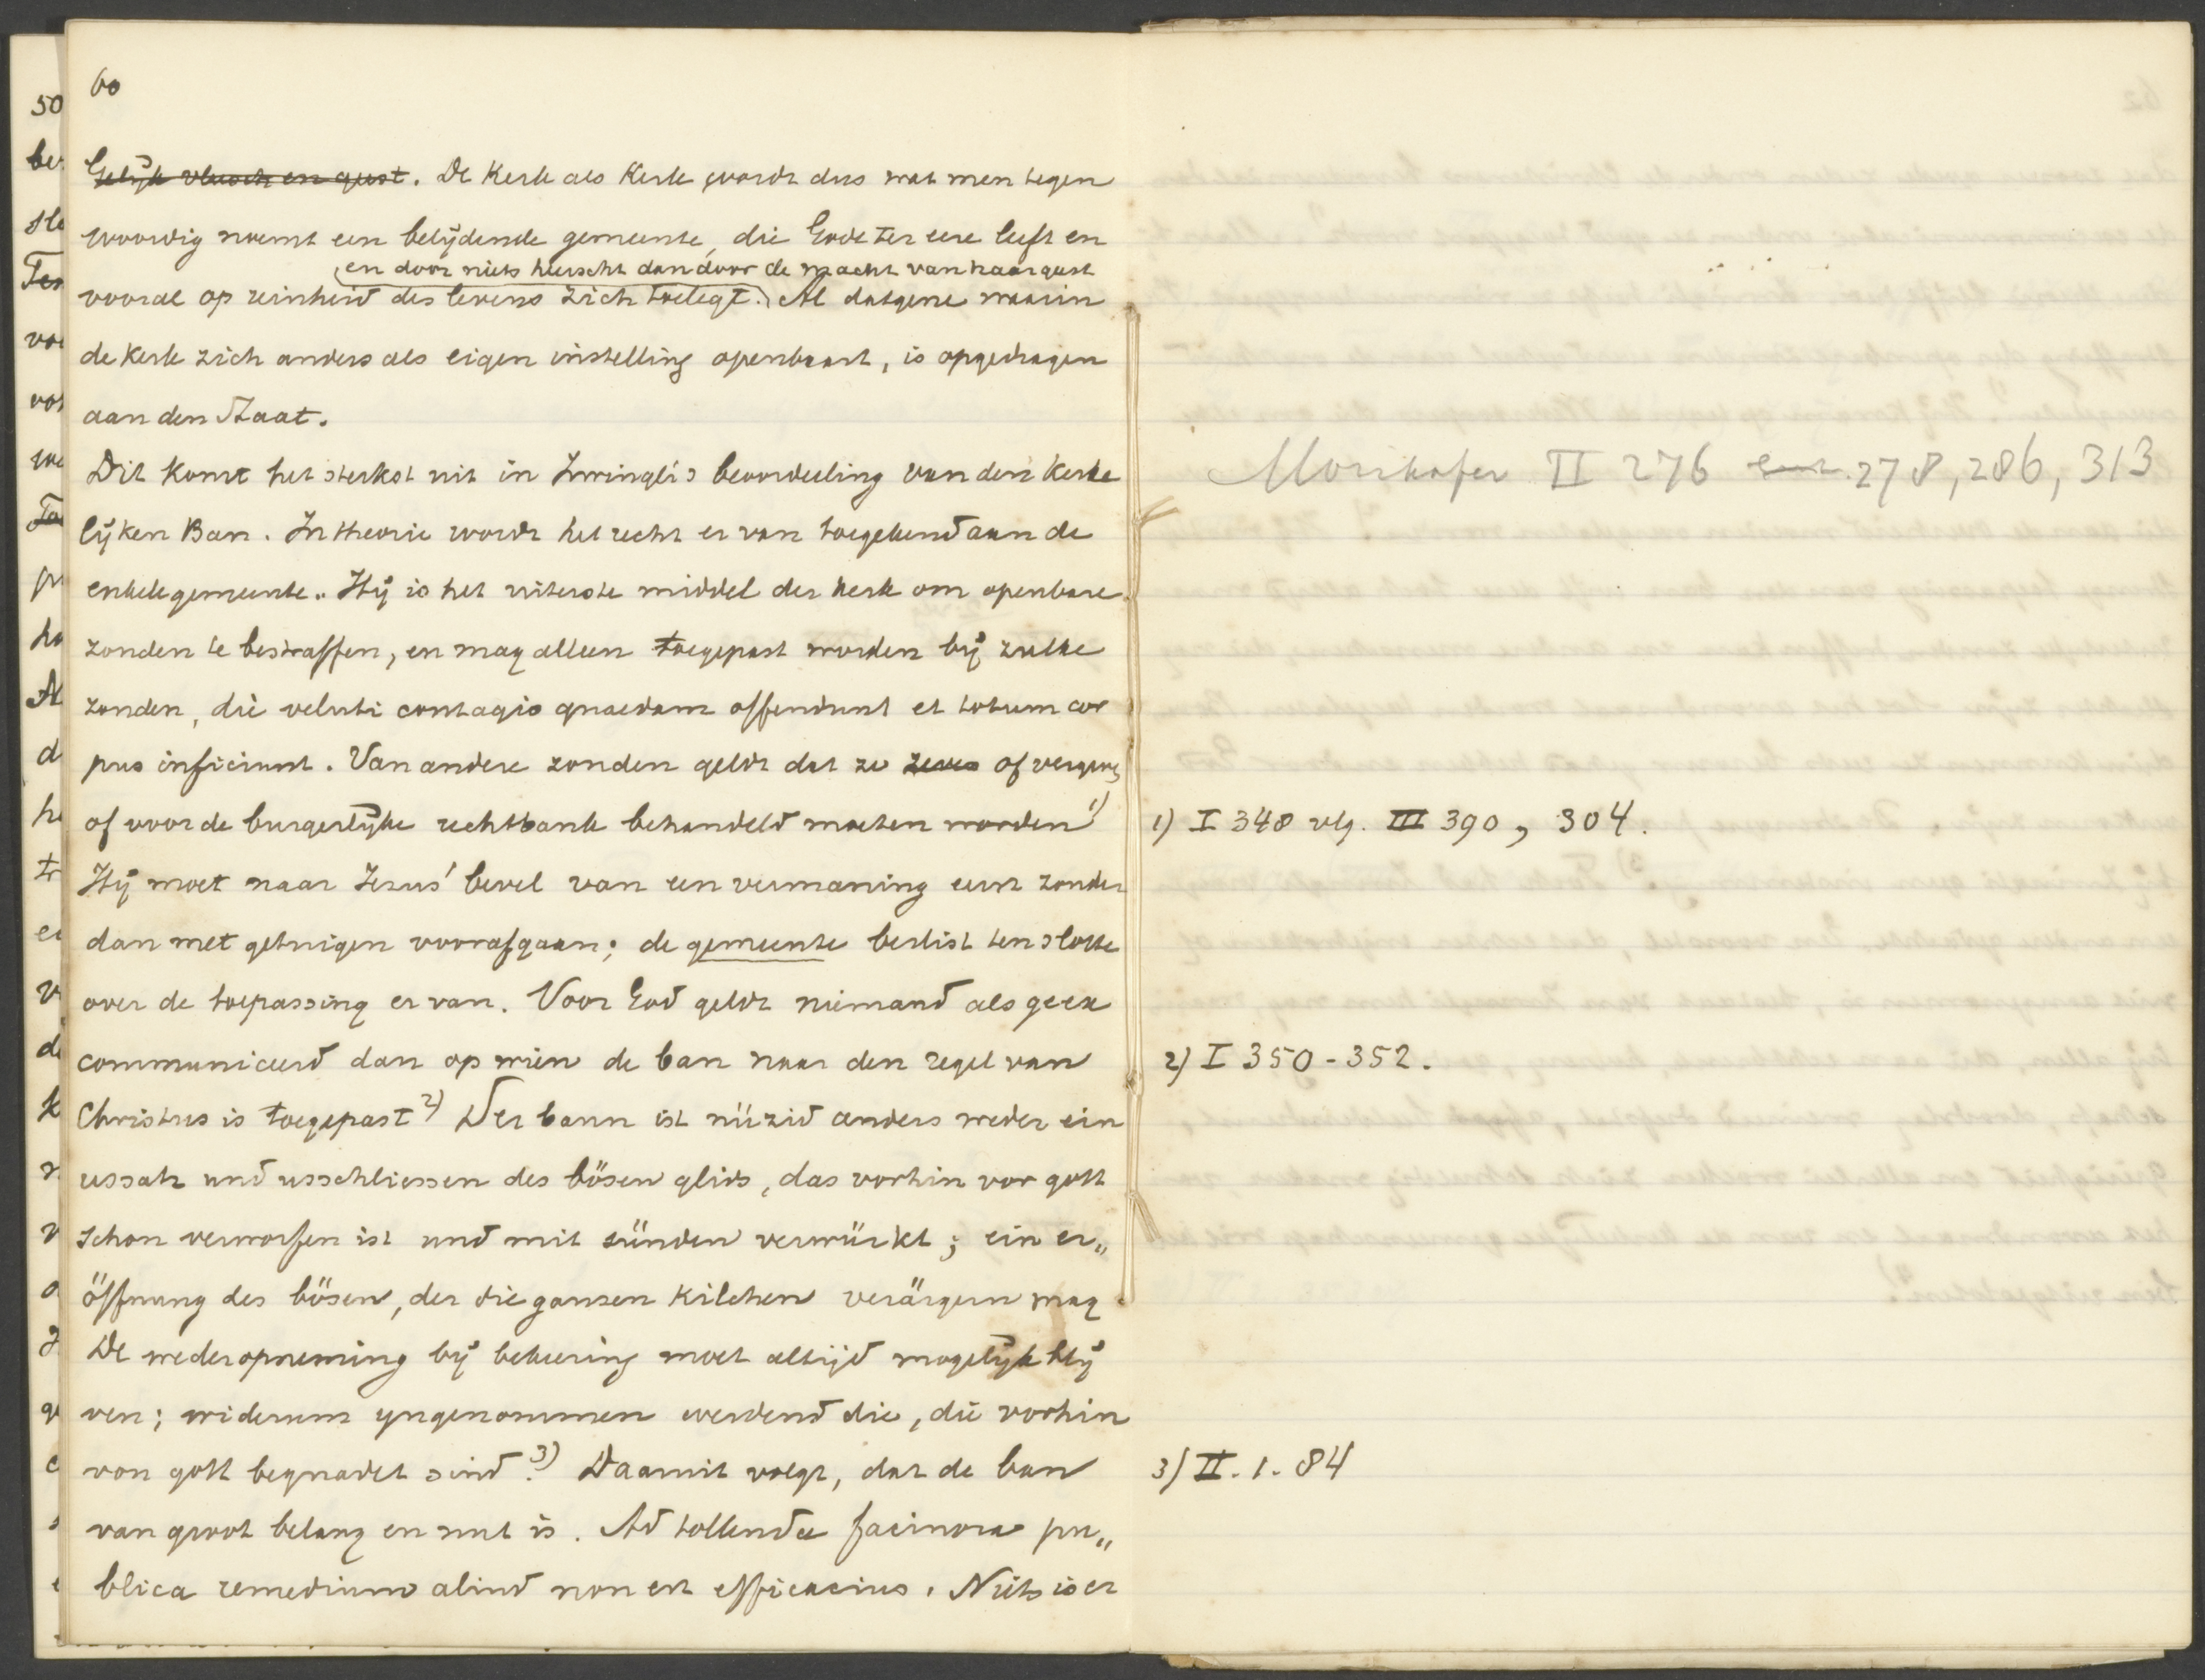 60
Gelijk vleesch en geest. De Kerk als Kerk wordt dus wat men tegen
woordig noemt een belijdende gemeente, die Gode ter eere leeft en
en door niets heerscht dan door de macht van haar geest
vooral op reinheid des levens zich toelegt. Al datgene waarin
de Kerk zich anders als eigen instelling openbaart, is opgedragen
aan den Staat.
Dit komt het sterkst uit in Zwingli's beoordeeling van den Kerke
lijken Ban. In theorie wordt het recht er van toegekend aan de
enkele gemeente. Hij is het uiterste middel der kerk om openbare
zonden te bestraffen, en mag alleen toegepast worden bij zulke
zonden, die veluti contagio quaedam offendunt et totum cor
pus inficiunt. Van andere zonden geldt dat ze of
of voor de burgerlijke rechtbank behandeld moeten worden 1)
Hij moet naar Jezus' bevel van een vermaning eerst zonder
dan met getuigen voorafgaan; de gemeente beslist ten slotte
over de toepassing er van. Voor God geldt niemand als geex
communiceerd dan op wien de ban naar den regel van
Christus is toegepast 2) Der bann ist nüzid anders weder ein
ussatz und usschliessen des bösen glids, das vorhin vor gott
schon verworfen ist und mit sünden verwürkt; ein er„
öffnung des bösen, der die ganzen Kilchen verärgern mag.
De wederopneming bij bekeering moet altijd mogelijk blij
ven; widerum yngenommen werdend die, die vorhin
von gott begnadet sind. 3) Daarmit volgt, dat de ban
van groot belang en nut is. Ad tollenda facinora pu„
blica remedium aliud non est efficacius. Niets is er
Morikofer II 276 278, 286, 313
1) I 348 vlg. III 390, 304.
2) I 350-352.
3) II. 1. 84
50